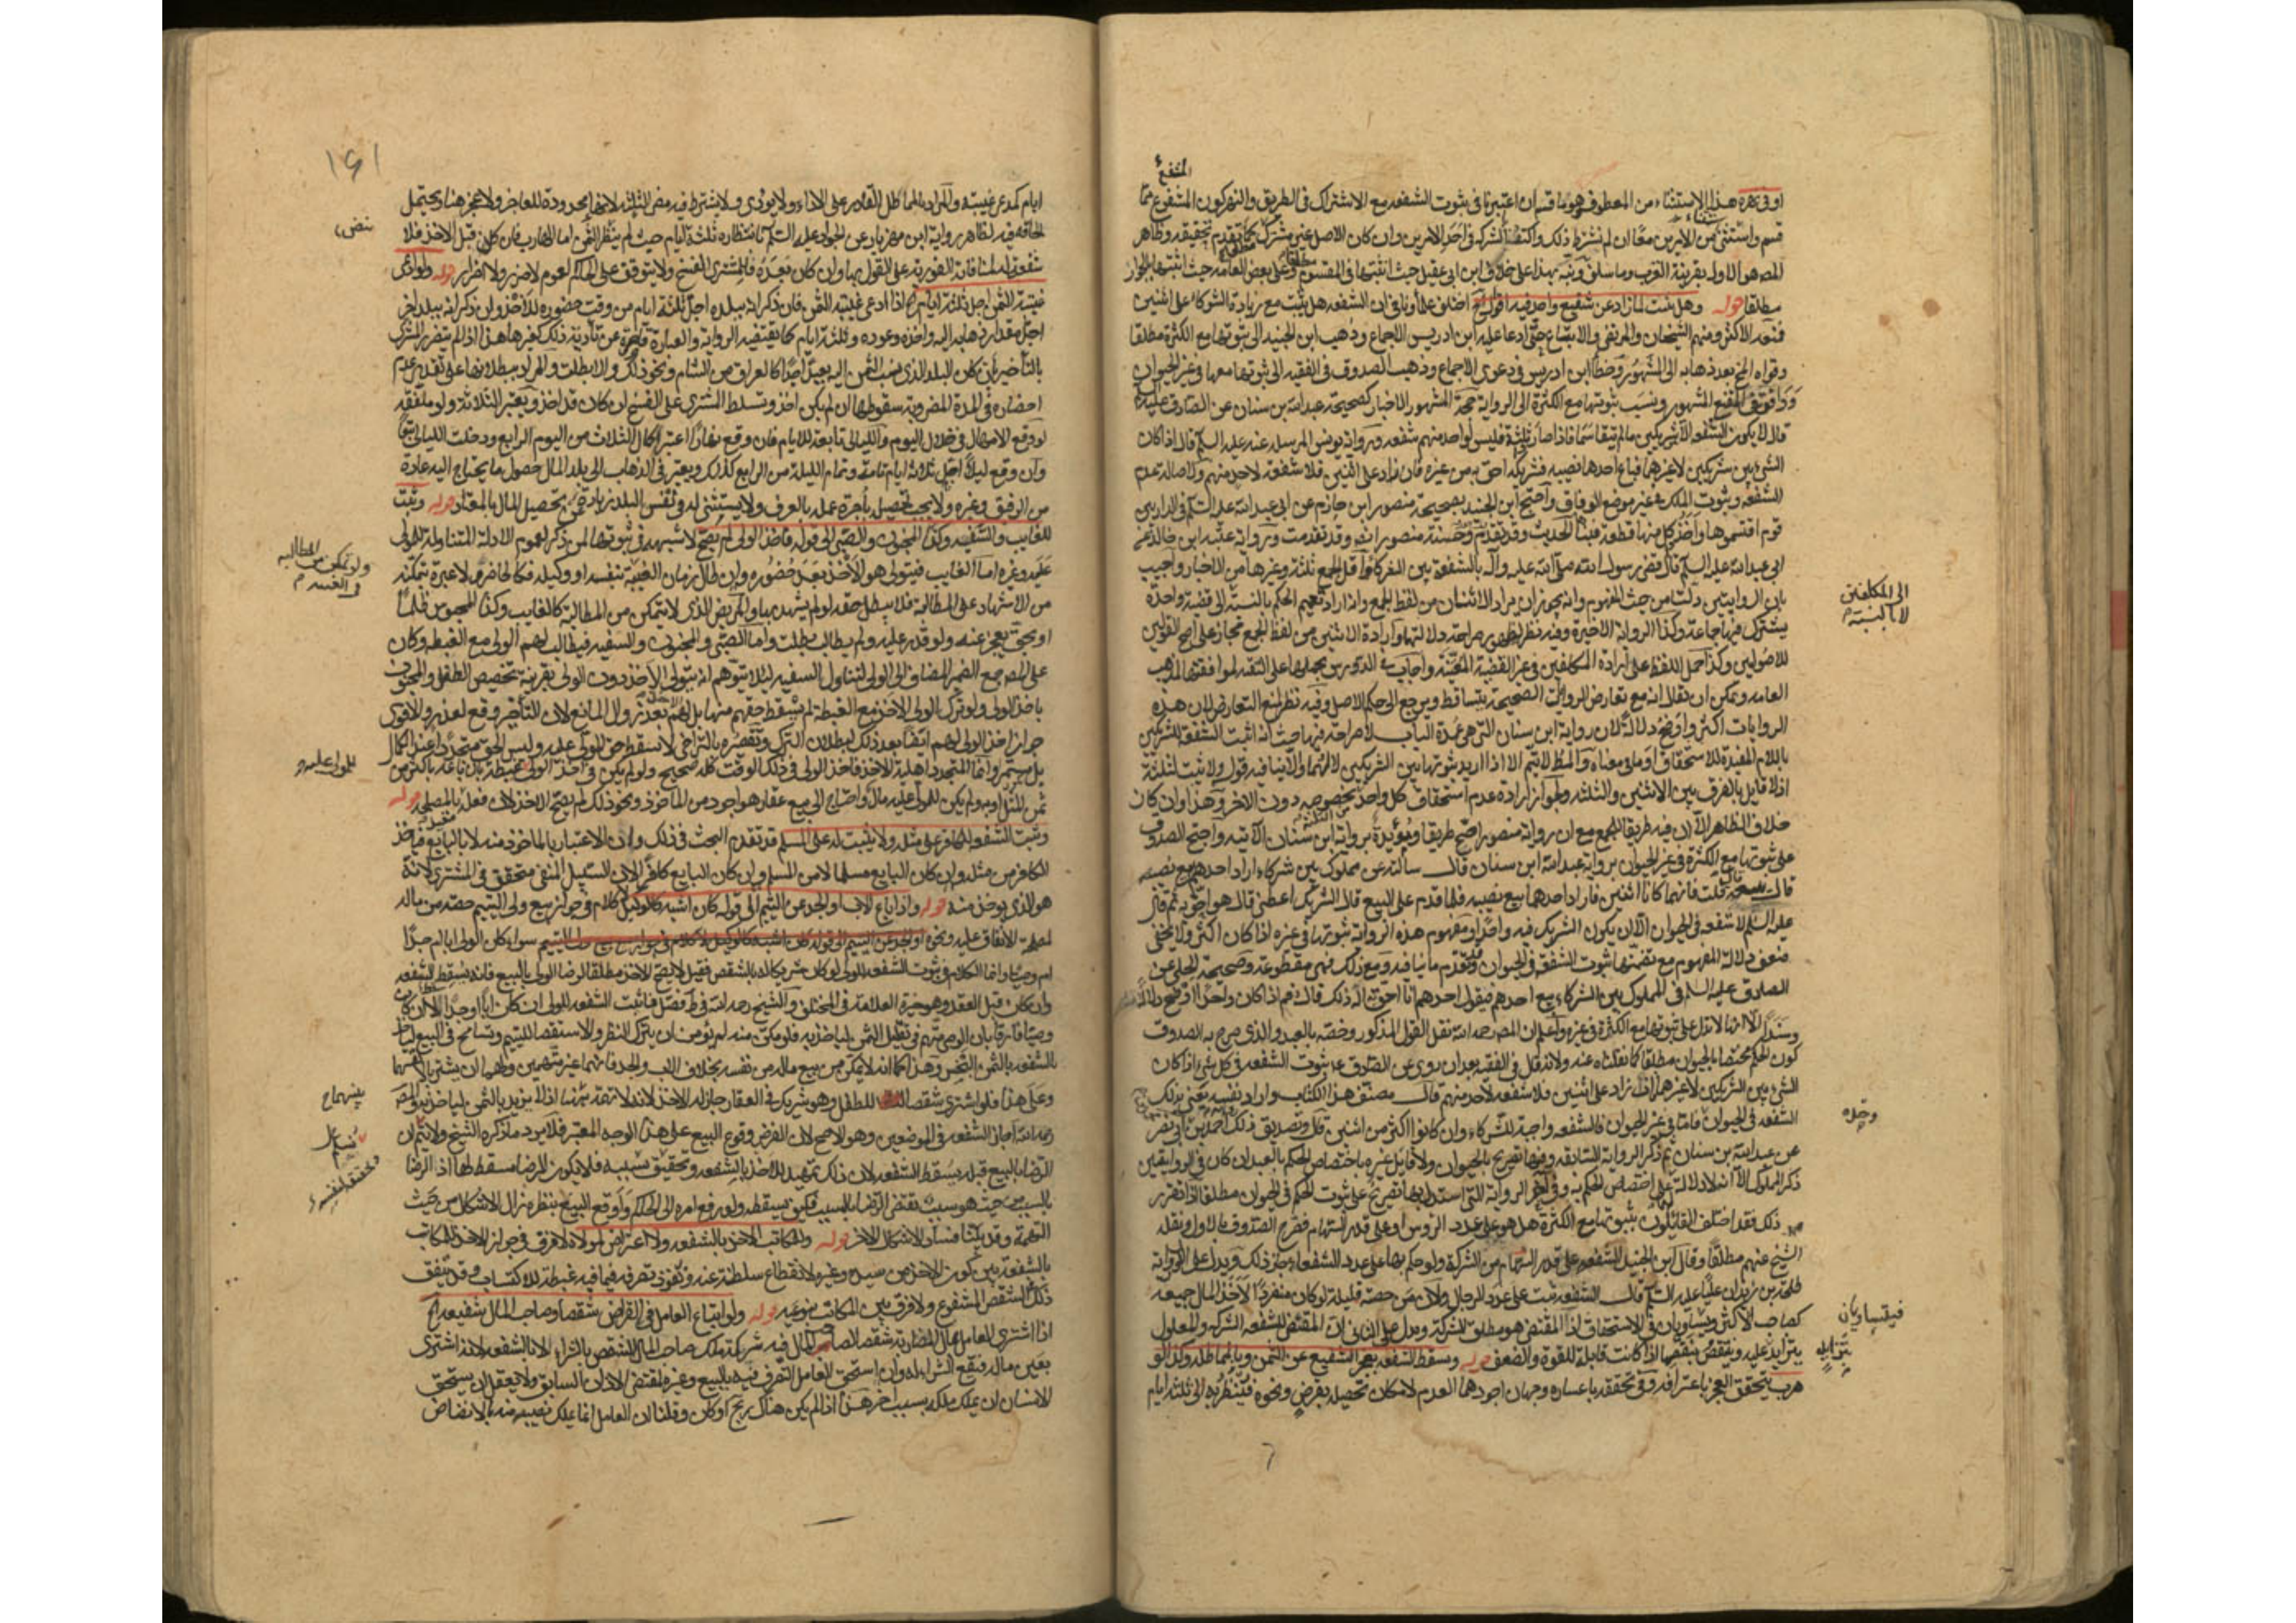 المشفوع
او في نهره هذا الاستثناء من المعطوف وهو ما قسم ان اعتبرنا في ثبوت الشفعه مع الاشتراك في الطريق والنهر كون المشفوع مما
قسم واستثنى من الامرين معا ان لم نشترط ذلك واكتفينا بالشركة في احد الامرين وان كان الاصل غير مشترك كما تقدم تحقيقه وظاهر
المصه هو الاول بقرينة القرب وما سلف ونبه بهذا على خلاف ابن ابي عقيل حيث اثبتها في المقسوم وعلى بعض العامه حيث اثبتها بالجوار
مطلقا قوله وهل يثبت لما زاد عن شفيع واحد فيه اقوال اختلف علماؤنا في ان الشفعه هل يثبت مع زيادة الشركاء على اثنين
فمنعه الاكثر ومنهم الشيخان والمرتضى والاتباع حتى ادعى عليه ابن ادريس الاجماع وذهب ابن الجنيد الى ثبوتها مع الكثرة مطلقا
وقواه في المخ بعد ذهابه الى المشهور وخطأ ابن ادريس في دعوى الاجماع وذهب الصدوق في الفقيه الى ثبوتها معها في غير الحيوان
ووافق في المقنع المشهور ونسب ثبوتها مع الكثرة الى الرواية حجة المشهور الاخبار كصحيحة عبد الله بن سنان عن الصادق عليه
قال لا يكون الشفعه الا لشريكين ما لم يتقاسما فاذا صار ثلثة فليس لواحد منهم شفعه ورواية يونس المرسله عنه عليه السلم قال اذا كان
الشيء بين شريكين لا غيرهما فباع احدهما نصيبه فشريكه احق به من غيره فان زاد على اثنين فلا شفعه لاحد منهم ولاصالة عدم
الشفعه وثبوت الملك في غير موضع الوفاق واحتج ابن الجنيد بصحيحة منصور ابن حازم عن ابي عبد الله عليه السلم في دار بين
قوم اقتسموها واخذ كل منها قطعة فبناها الحديث وقد تقدم وحسنة منصور ايضا وقد تقدمت ورواية عقبه ابن خالد عن
ابي عبد الله عليه السلم قال قضى رسول الله صلى الله عليه وآله بالشفعة بين الشركاء واقل الجمع ثلثة وغيرها من الاخبار واجيب
بان الروايتين دلتا من حيث المفهوم وانه يجوز ان يراد الاثنان من لفظ الجمع واذا اراد تعميم الحكم بالنسبة الى قضية واحدة
الى المكلفين
لا بالنسبة
يشترك فيها جماعة وكذا الرواية الاخيرة وفيه نظر لظهور صراحة دلالتها وارادة الاثنين من لفظ الجمع مجاز على اصح القولين
للاصوليين وكذا حمل اللفظ على ارادة المكلفين في غير القضية المعينة واجاب في الدروس بحملها على التقية لموافقتها لمذهب
العامه ويمكن ان يقال انه مع تعارض الروايات الصحيحة يتساقط ويرجع الى حكم الاصل وفيه نظر لمنع التعارض لان هذه
الروايات اكثر واوضح دلالة لان رواية ابن سنان التي هي عمدة الباب لا صراحة فيها حيث انه اثبت الشفعة للشريكين
باللام المفيدة للاستحقاق او ما في معناه والمطلوب لا يتم الا اذا اريد ثبوتها بين الشريكين لا لهما والا ينافيه قوله ولا يثبت لثلثة
اذ لا قايل بالفرق بين الاثنين والثلثه ولجواز ارادة عدم استحقاق كل واحد بخصوصه دون الاخر وهذا وان كان
خلاف الظاهر الا ان فيه طريقا للجمع مع ان رواية منصور اصح طريقا ومؤيدة برواية ابن سنان الآتيه واحتج الصدوق
على ثبوتها مع الكثرة في غير الحيوان برواية عبد الله ابن سنان قال سألته عن مملوك بين شركاء اراد احدهم بيع نصيبه
قال يبيعه قلت فانهما كانا اثنين فاراد احدهما بيع نصيبه فلما قدم على البيع قال الشريك اعطني قال هو احق به ثم قال
عليه السلم لا شفعه في الحيوان الا ان يكون الشريك فيه واحدا ومفهوم هذه الرواية ثبوتها في غيره اذا كان اكثر ولا يخفى
ضعف دلالة المفهوم مع تضمنها ثبوت الشفعة في الحيوان وقد تقدم ما ينافيه ومع ذلك فهي مقطوعة وصحيحة الحلبي عن
الصادق عليه السلم في المملوك بين الشركاء يبيع احدهم فيقول احدهم انا احق به اله ذلك قال نعم اذا كان واحدا اوضح دلالة
وسندا الا انها لا تدل على ثبوتها مع الكثرة في غيره واعلم ان المصه رحمه الله نقل القول المذكور وخصه بالعبد والذي صرح به الصدوق
كون الحكم مختصا بالحيوان مطلقا كما نقلناه عنه ولانه قال في الفقيه بعد ان روى عن الصادق ع ثبوت الشفعه في كل شيء اذا كان
الشيء بين الشريكين لا غيرهما فان زاد على اثنين فلا شفعه لاحد منهم قال مصنف هذا الكتاب واراد نفسه يعني بذلك
وحده
الشفعه في الحيوان فاما في غير الحيوان فالشفعه واجبة للشركاء وان كانوا اكثر من اثنين قال وتصديق ذلك احمد بن ابي نصر
عن عبد الله بن سنان ثم ذكر الرواية السابقه وفيها تصريح بالحيوان ولا قايل غيره باختصاص الحكم بالعبد وان كان في الروايتين
ذكر المملوك الا انه لا دلالة على اختصاص الحكم به وفي آخر الرواية التي استدل بها تصريح على ثبوت الحكم في الحيوان مطلقا اذا تقرر
ذلك فقد اختلف القائلون بثبوتها مع الكثرة هل هو على عدد الروس او على قدر السهام فصرح الصدوق بالاول ونقله
الشيخ عنهم مطلقا وقال ابن الجنيد الشفعه على قدر السهام من الشركة ولو حكم بها على عدد الشفعاء جاز ذلك ويدل على الاول رواية
طلحة بن زيد ان عليا عليه السلم قال الشفعه تثبت على عدد الرجال ولان من حصته قليلة لو كان منفردا لاخذ المال جميعه
فيتساويان
كصاحب الاكثر ويتساويان في الاستحقاق اذ المقتضي هو مطلق الشركة ويدل على الثاني ان المقتضي للشفعه الشركة والمعلول
يتزايد عليه وينقص بنقصها اذا كانت قابلة للقوة والضعف قوله وتسقط الشفعه بعجز الشفيع عن الثمن وبالمماطله وكذا لو
بتزايد
هرب يتحقق العجز باعترافه وفي تحققه باعساره وجهان اجودهما العدم لامكان تحصيله بقرض ونحوه فينظر به الى ثلثة ايام
١٤١
ايام كمدعي غيبته والمراد بالمماطل القادر على الاداء ولا يؤدي ولا يشترط فيه مضي الثلثه لانها محدودة للعاجز ولا عجز هنا ويحتمل
الحاقه به لظاهر رواية ابن مهزيار عن الجواد عليه السلم بانتظاره ثلثة ايام حيث لم ينض الثمن اما الهارب فان كان قبل الاخذ فلا
شفعة له لمنافاته الفورية على القول بها وان كان بعده فللمشتري الفسخ ولا يتوقف على الحاكم لعموم لا ضرر ولا اضرار قوله ولو ادعى
غيبة الثمن اجل ثلثة ايام اذا ادعى غيبة الثمن فان ذكر انه ببلده اجل ثلثة ايام من وقت حضوره للاخذ وان ذكر انه ببلد اخر
اجل مقدار ذهابه اليه واخذه وعوده وثلثة ايام كما يقتضيه الرواية والعبارة قاصرة عن تأدية ذلك كغيرها هذا اذا لم يتضرر المشتري
بالتأخير بان كان البلد الذي نسب الثمن اليه بعيدا جدا كالعراق من الشام ونحو ذلك والا بطلت والمراد ببطلانها على تقدير عدم
احضاره في المدة المضروبة سقوطها ان لم يكن اخذ وتسلط المشتري على الفسخ ان كان قد اخذ ويعتبر الثلاثة ولو ملفقه
لو وقع الامهال في خلال اليوم والليالي تابعة للايام فان وقع نهارا اعتبر اكمال الثلاث من اليوم الرابع ودخلت الليالي تبعا
وان وقع ليلا اجل ثلاثة ايام تامة وتمام الليلة من الرابع كذلك ويعتبر في الذهاب الى بلد المال حصول ما يحتاج اليه عادة
من الرفيق وغيره ولا يجب تحصيل باجرة عملا بالعرف ولا يستثنى له في نفس البلد زيادة عن تحصيل المال بالمعتاد قوله ويثبت
للغايب والسفيه وكذا المجنون والصبي الى قوله فاخذ الولي لم يصح لا شبهه في ثبوتها لمن ذكر لعموم الادلة المتناولة للمولى
ولو تمكن من المطالبه
في الغيبه م
عليه وغيره اما الغايب فيتولى هو الاخذ بعد حضوره وان طال زمان الغيبة بنفسه او وكيله فكالحاضر ولا عبرة بتمكنه
من الاشهاد على المطالبة فلا يبطل حقه لو لم يشهد بها والمريض الذي لا يتمكن من المطالبة كالغايب وكذا المحبوس ظلما
او بحق يعجز عنه ولو قدر عليه ولم يطالب بطلت واما الصبي والمجنون والسفيه فيطالب لهم الولي مع الغبطه وكان
على المصه جمع الضمير المضاف الى الولي لتناول السفيه لئلا يتوهم انه يتولى الاخذ دون الولي بقرينة تخصيص الطفل والمجنون
باخذ الولي ولو ترك الولي الاخذ مع الغبطة لم يسقط حقهم منها بل لهم بعد زوال المانع لان التأخير وقع لعذر والاقوى
جواز اخذ الولي لهم ايضا بعد ذلك لبطلان الترك وتقصيره بالتراخي لا يسقط حق المولى عليه وليس الحق متجددا عند الكمال
للمولى عليه
بل مستمر وانما المتجدد اهلية الاخذ فاخذ الولي في ذلك الوقت كله صحيح ولو لم يكن في اخذ الولي غبطة بان باعه باكثر من
ثمن المثل او به ولم يكن للمولى عليه مال واحتاج الى بيع عقار هو اجود من الماخوذ ونحو ذلك لم يصح الاخذ لان فعله بالمصلحه قوله
ويثبت الشفعه للكافر على مثله ولا يثبت له على المسلم قد تقدم البحث في ذلك وان الاعتبار بالماخوذ منه لا بالبايع فياخذ
الكافر من مثله وان كان البايع مسلما لا من المسلم وان كان البايع كافرا لان السبيل المنفي متحقق في المشتري لانه
هو الذي يؤخذ منه قوله واذا باع الاب او الجد عن اليتيم الى قوله كان اشبه كالوكيل لا كلام في جواز بيع ولي اليتيم حصته من ماله
لمصلحة الانفاق عليه ونحوه سواء كان الولي ابا ام جدا
ام وصيا وانما الكلام في ثبوت الشفعه للولي لو كان شريكا له بالشقص فقيل لا يصح الاخذ مطلقا لرضا الولي بالبيع فانه يسقط الشفعه
وان كان قبل العقد وهو خيرة العلامة في المختلف والشيخ رحمه الله في ط فصل فاثبت الشفعه للولي ان كان ابا او جدا لا ان كان
وصيا فارقا بان الوصي متهم في تقليل الثمن لياخذ به فلو مكن منه لم يؤمن ان يترك النظر والاستقصا لليتيم ويسامح في البيع لياخذ
بالشفعه بالثمن البخس وهذا كما انه لا يمكن من بيع ماله من نفسه بخلاف الاب والجد فانهما غير متهمين ولهما ان يشتريا لانفسهما
وعلى هذا فلو اشترى شقصا للطفل وهو شريك في العقار جاز له الاخذ لانه لا تهمة هنا اذ لا يزيد بالثمن لياخذ به والمصه
رحمه الله اجاز الشفعه في الموضعين وهو الاصح لان الفرض وقوع البيع على هذا الوجه المعتبر فلا يرد ما ذكره الشيخ ولا نم ان
الرضا بالبيع قبله يسقط الشفعه لان ذلك تمهيد للاخذ بالشفعه وتحقيق سببه فلا يكون الرضا مسقطا لها اذ الرضا
بالسبب من حيث هو سبب يقتضي الرضا بالمسبب فكيف يسقطه ولو رفع امره الى الحاكم واوقع البيع بنظره زال الاشكال من حيث
التهمة وقد بينا فساد الاشكال الاخر قوله وللمكاتب الاخذ بالشفعه ولا اعتراض لمولاه لا فرق في جواز الاخذ للمكاتب
بالشفعة بين كون الاخذ من سيده وغيره لانقطاع سلطنته عنه ونفوذ تصرفه فيما فيه غبطة للاكتساب وقد يتفق
ذلك الشقص المشفوع ولا فرق بين المكاتب بنوعيه قوله ولو ابتاع العامل في القراض شقصا وصاحب المال شفيعه
اذا اشترى العامل بمال المضاربة شقصا لصاحب المال فيه شركة ملك صاحب المال الشقص بالشراء لا بالشفعه لانه اشترى
بعين ماله فيقع الشراء له وان استحق العامل التصرف فيه بالبيع وغيره لمقتضى الاذن السابق ولا يعقل ان يستحق
الانسان ان يملك ملكه بسبب اخر هذا اذا لم يكن هناك ربح او كان وقلنا ان العامل انما يملك نصيبه منه بالانضاض